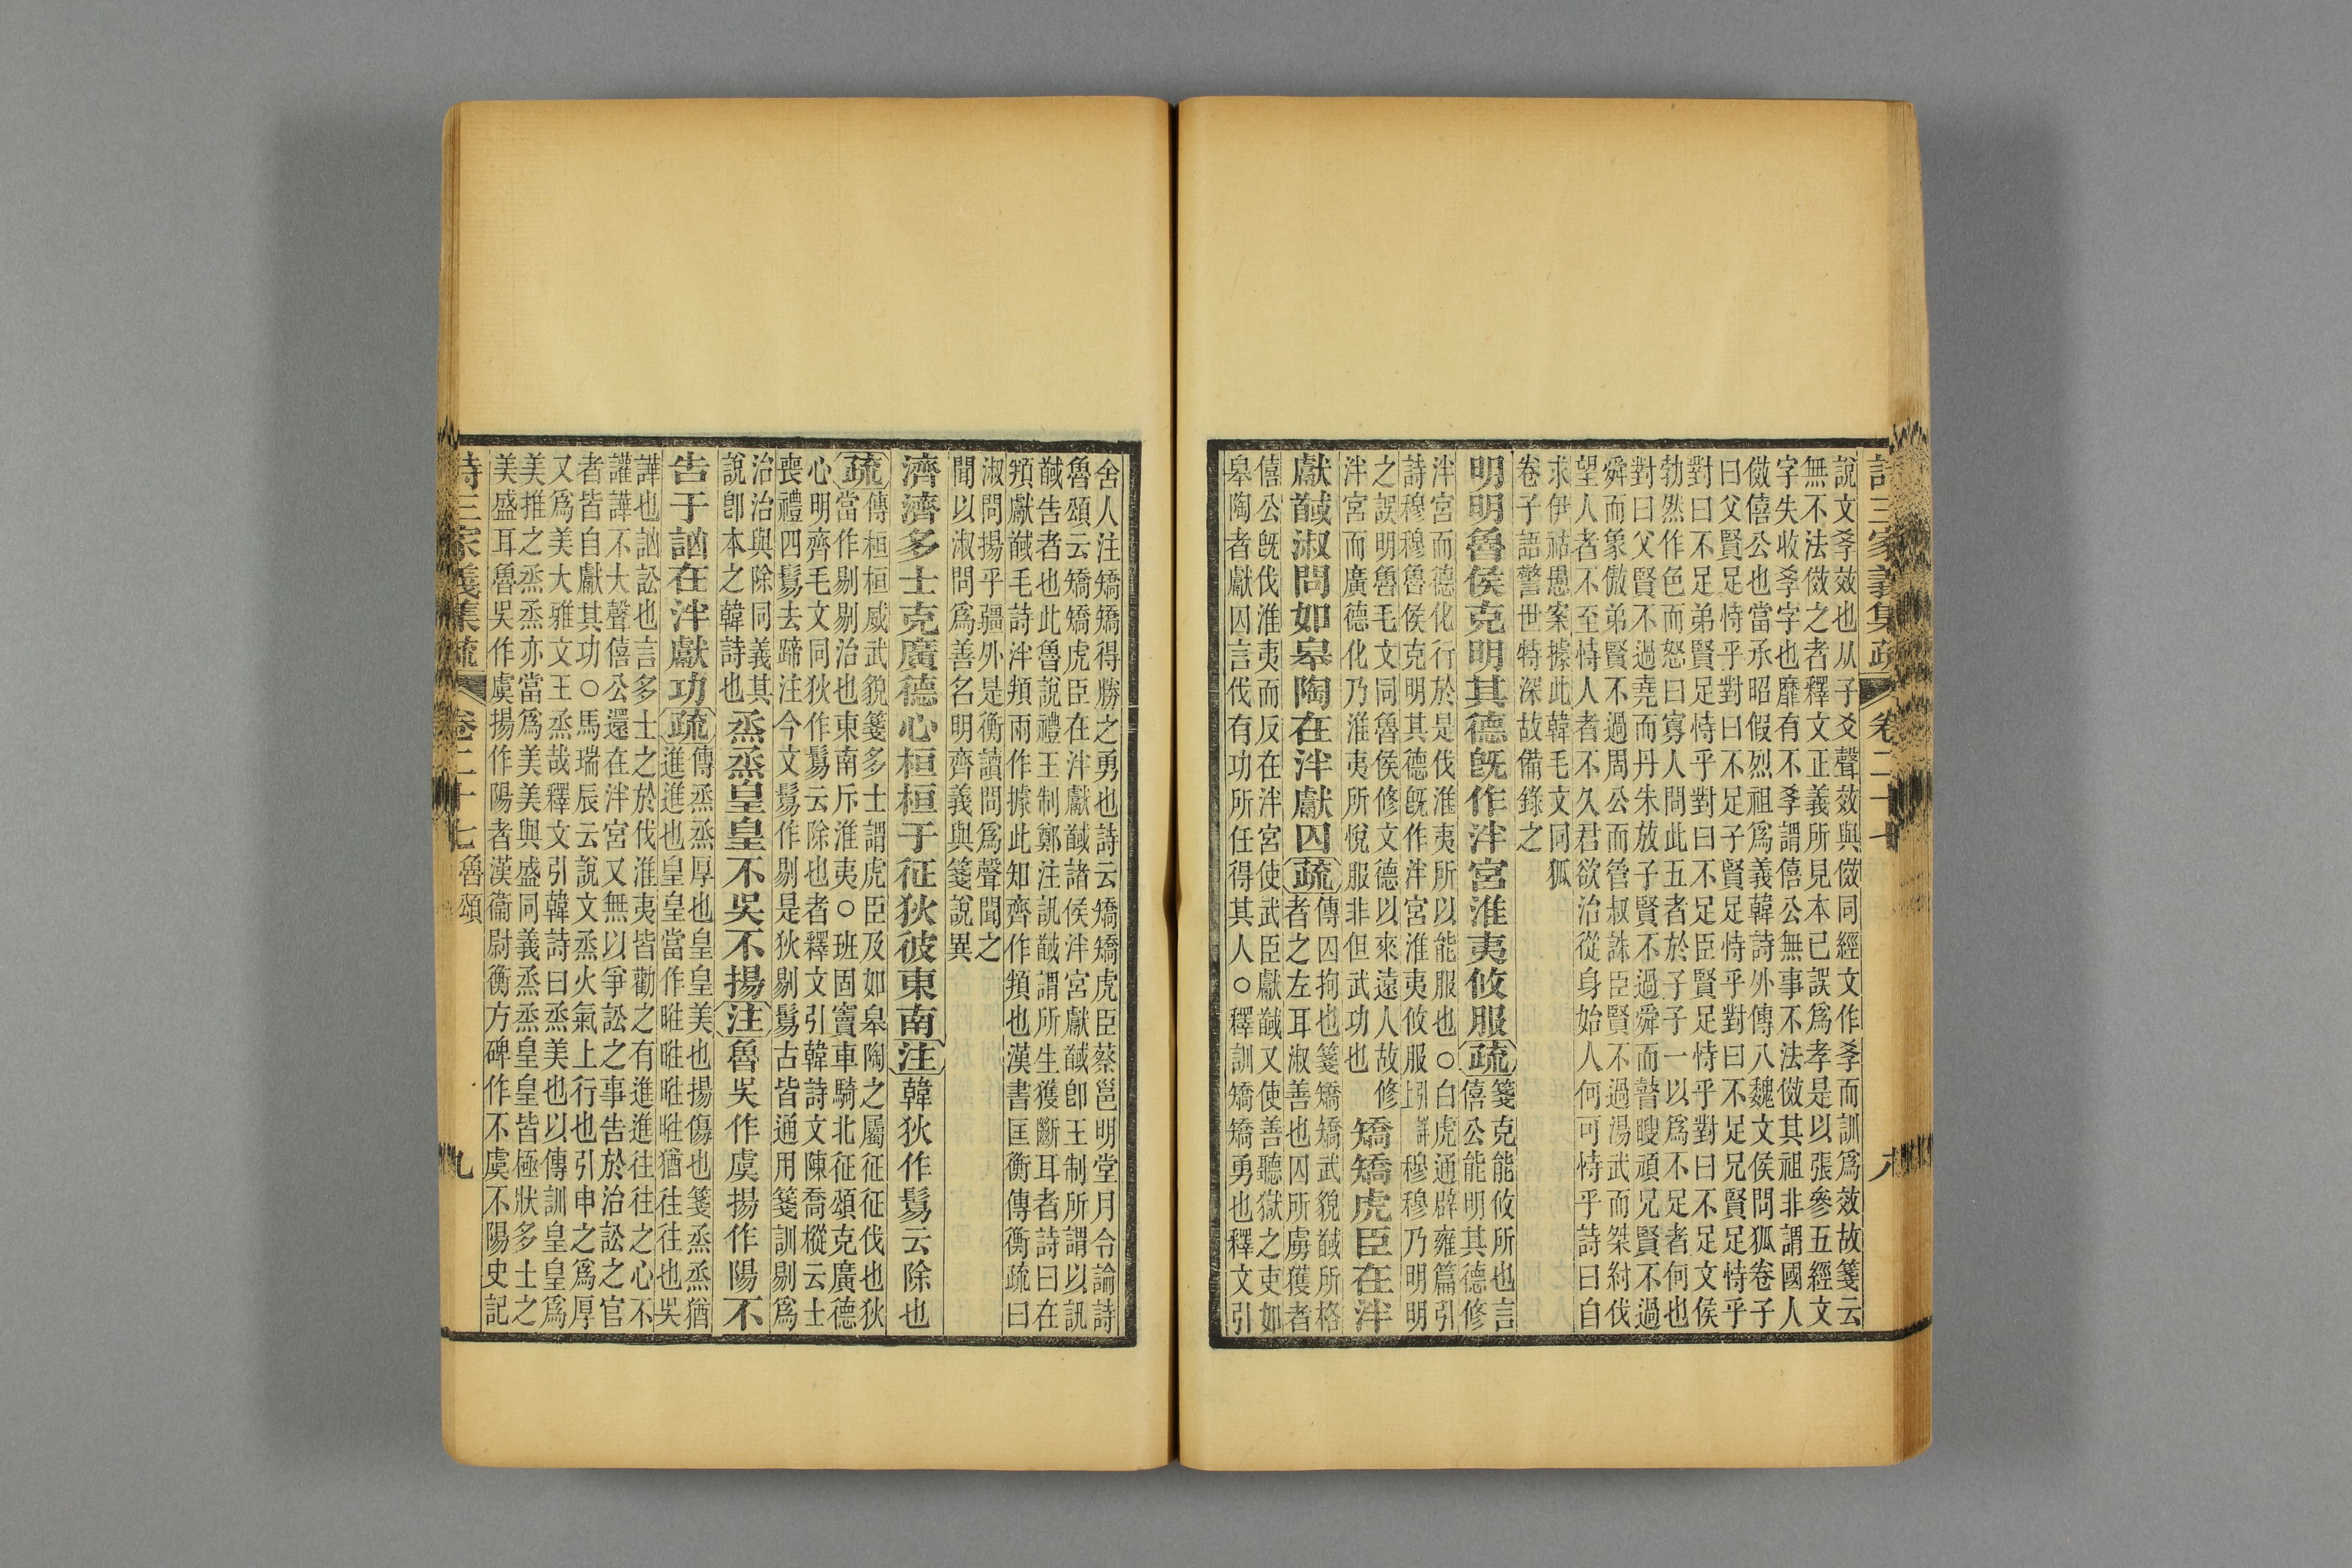 詩三家義集疏 卷二十七 八
說文孝效也从子爻聲效與傚同經文作孝而訓爲效故箋云
無不法傚之者釋文正義所見本已誤爲孝是以張參五經文
字失收孝字也靡有不孝謂僖公無事不法傚其祖非謂國人
傚僖公也當承昭假烈祖爲義韓詩外傳八魏文侯問狐卷子
曰父賢足恃乎對曰不足子賢足恃乎對曰不足兄賢足恃乎
對曰不足弟賢足恃乎對曰不足臣賢足恃乎對曰不足文侯
勃然作色而怒曰寡人問此五者於子子一以爲不足者何也
對曰父賢不過堯而丹朱放子賢不過舜而瞽瞍頑兄賢不過
舜而象傲弟賢不過周公而管叔誅臣賢不過湯武而桀紂伐
望人者不至恃人者不久君欲治從身始人何可恃乎詩曰自
求伊祜愚案據此韓毛文同狐
卷子語警世特深故備錄之
明明魯侯克明其德旣作泮宮淮夷攸服疏
箋克能攸所也言
僖公能明其德修
泮宮而德化行於是伐淮夷所以能服也○白虎通辟雍篇引
詩穆穆魯侯克明其德旣作泮宮淮夷攸服 穆穆乃明明
之誤明魯毛文同魯侯修文德以來遠人故修
泮宮而廣德化乃淮夷所悅服非但武功也
矯矯虎臣在泮
獻馘淑問如皋陶在泮獻囚疏
傳囚拘也箋矯矯武貌馘所格
者之左耳淑善也囚所虜獲者
僖公旣伐淮夷而反在泮宮使武臣獻馘又使善聽獄之吏如
皋陶者獻囚言伐有功所任得其人○釋訓矯矯勇也釋文引
舍人注矯矯得勝之勇也詩云矯矯虎臣蔡邕明堂月令論詩
魯頌云矯矯虎臣在泮獻馘諸侯泮宮獻馘卽王制所謂以訊
馘告者也此魯說禮王制鄭注訊馘謂所生獲斷耳者詩曰在
頖獻馘毛詩泮頖兩作據此知齊作頖也漢書匡衡傳衡疏曰
淑問揚乎疆外是衡讀問爲聲聞之
聞以淑問爲善名明齊義與箋說異
濟濟多士克廣德心桓桓于征狄彼東南注韓狄作鬄云除也
疏
傳桓桓威武貌箋多士謂虎臣及如皋陶之屬征征伐也狄
當作剔剔治也東南斥淮夷○班固竇車騎北征頌克廣德
心明齊毛文同狄作鬄云除也者釋文引韓詩文陳喬樅云士
喪禮四鬄去蹄注今文鬄作剔是狄剔鬄古皆通用箋訓剔爲
治治與除同義其
說卽本之韓詩也
烝烝皇皇不吳不揚注魯吳作虞揚作陽不
告于訩在泮獻功疏
傳烝烝厚也皇皇美也揚傷也箋烝烝猶
進進也皇皇當作暀暀暀暀猶往往也吳
譁也訩訟也言多士之於伐淮夷皆勸之有進進往往之心不
讙譁不大聲僖公還在泮宮又無以爭訟之事告於治訟之官
者皆自獻其功○馬瑞辰云說文烝火氣上行也引申之爲厚
又爲美大雅文王烝哉釋文引韓詩曰烝美也以傳訓皇皇爲
美推之烝烝亦當爲美美與盛同義烝烝皇皇皆極狀多士之
美盛耳魯吳作虞揚作陽者漢衞尉衡方碑作不虞不陽史記
詩三家義集疏 卷二十七 魯頌 九